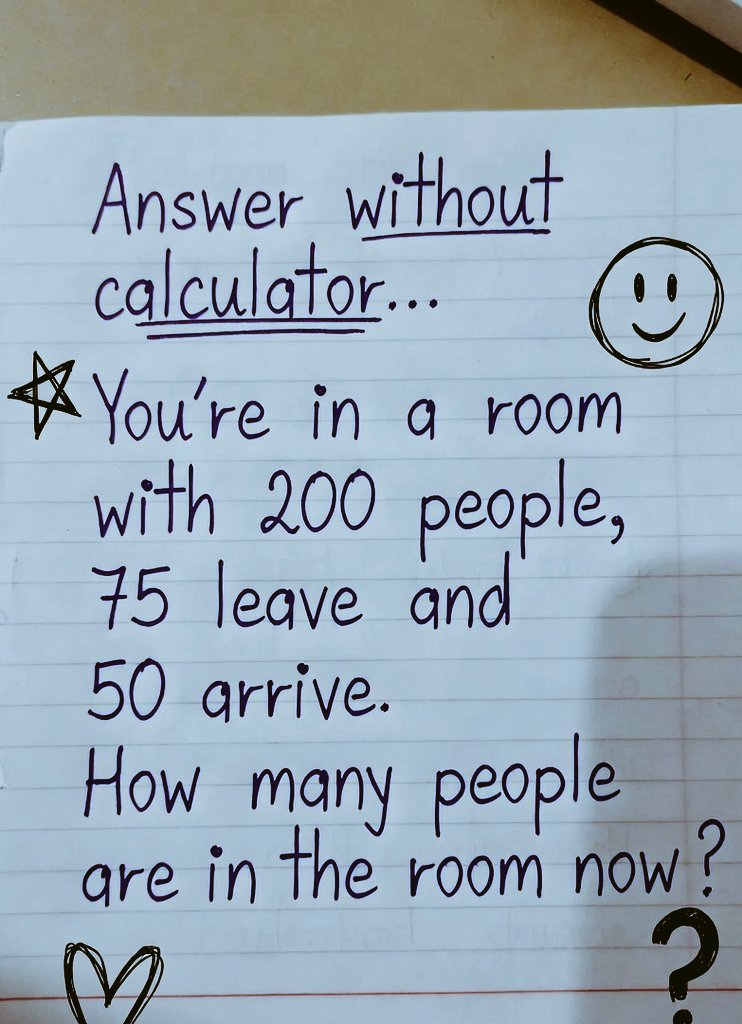 Answer without
calculator...
You're in a room
with 200 people,
75 leave and
50 arrive.
How many people
are in the room now?
?